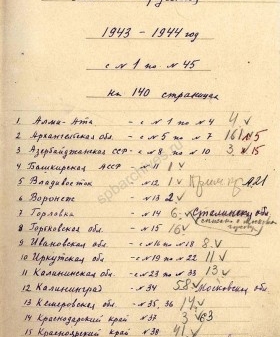 1943 - 1944 год
с №1 по №45
на 140 страницах
1 Алма-Ата - с №1 по №4 4 ✓
2 Архангельская обл. - с №5 по №7 161 15
3 Азербайджанская ССР - с №8 по №10 3 ✓ 15
4 Башкирская АССР - №11 1 ✓
5 Владивосток №12 1 ✓
6 Воронеж №13 2 ✓
7 Горловка - №14 6 ✓ Сталинская обл.
8 Горьковская обл. - №15 16 ✓
9 Ивановская обл. - №16 по №18 8 ✓
10 Иркутская обл. - с №19 по №22 11 ✓
11 Калининская обл. - с №23 по №33 13 ✓
12 Калининград - №34 58 ✓ Московская обл.
13 Кемеровская обл. - №35, 36 14 ✓
14 Краснодарский край №37 3 ✓
15 Красноярский край №38 41 ✓